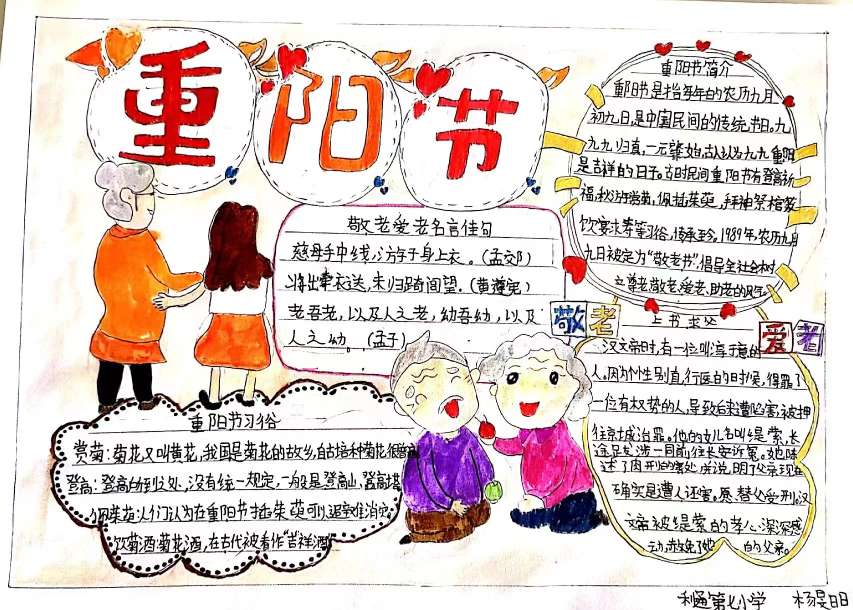 重阳节
重阳节简介
重阳节是指每年的农历九月
初九日,是中国民间的传统节日。九
九归真,一元肇始,古人认为九九重阳
是吉祥的日子。古时民间重阳节有登高祈
福,秋游赏菊,佩插茱萸,拜神祭
饮宴求寿等习俗,传承至今,1989年,农历九月
九日被定为“敬老节”,倡导全社会树
立尊老、敬老、爱老、助老的风气。
敬老爱老名言佳句
慈母手中线,游子身上衣。(孟郊)
将出牵衣送,未归踦闾望。(黄遵宪)
老吾老,以及人之老,幼吾幼,以及
人之幼。(孟子)
敬老
爱老
上书求处
汉文帝时,有一位叫淳于意的
人。因为个性刚直,行医的时候,得罪了
一位有权势的人,导致后来遭陷害,被押
往京城治罪。他的女儿名叫缇萦,长
途跋涉一同前往长安诉冤。她陈
述了肉刑的害处,并说明了父亲现在
确实是遭人迁害。愿替父受刑。汉
文帝被缇萦的孝心深深感
动,赦免了她的父亲。
重阳节习俗
赏菊:菊花又叫黄花,我国是菊花的故乡,自古培种菊花很普遍
登高:登高所到之处,没有统一规定,一般是登高山、登高塔
佩茱萸:人们认为在重阳节插茱萸可以避难消灾
饮菊酒:菊花酒,在古代被看作“吉祥酒”
利通第七小学 杨昊明